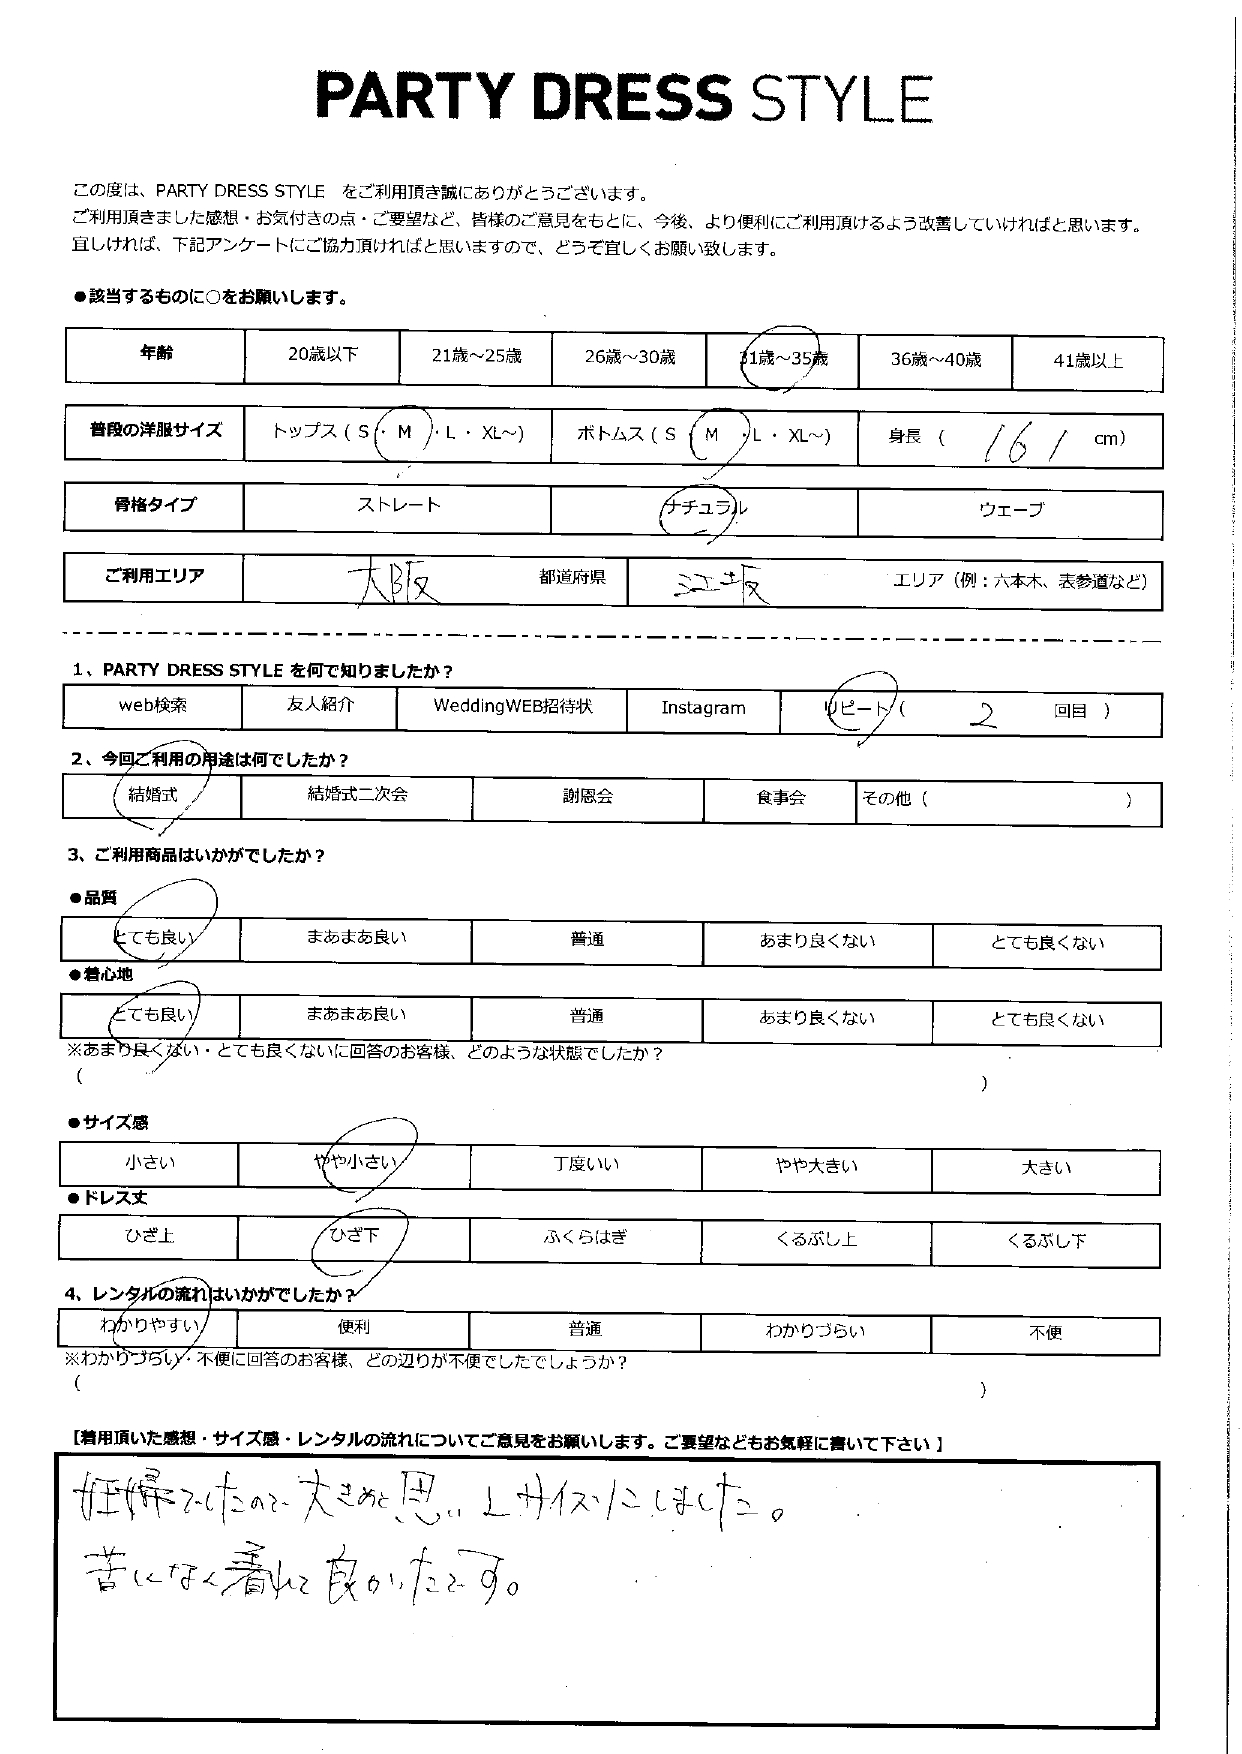 PARTY DRESS STYLE
この度は、PARTY DRESS STYLE をご利用頂き誠にありがとうございます。
ご利用頂きました感想・お気付きの点・ご要望など、皆様のご意見をもとに、今後、より便利にご利用頂けるよう改善していければと思います。
宜しければ、下記アンケートにご協力頂ければと思いますので、どうぞ宜しくお願い致します。
●該当するものに○をお願いします。
年齢 20歳以下 21歳～25歳 26歳～30歳 31歳～35歳 36歳～40歳 41歳以上
普段の洋服サイズ トップス ( S ・ M ・ L ・ XL～) ボトムス ( S ・ M ・ L ・ XL～) 身長 ( 161 cm)
骨格タイプ ストレート ナチュラル ウェーブ
ご利用エリア 大阪 都道府県 江坂 エリア（例：六本木、表参道など）
1、PARTY DRESS STYLE を何で知りましたか？
web検索 友人紹介 WeddingWEB招待状 Instagram リピート ( 2 回目 )
2、今回ご利用の用途は何でしたか？
結婚式 結婚式二次会 謝恩会 食事会 その他 ( )
3、ご利用商品はいかがでしたか？
●品質
とても良い まあまあ良い 普通 あまり良くない とても良くない
●着心地
とても良い まあまあ良い 普通 あまり良くない とても良くない
※あまり良くない・とても良くないに回答のお客様、どのような状態でしたか？
( )
●サイズ感
小さい やや小さい 丁度いい やや大きい 大きい
●ドレス丈
ひざ上 ひざ下 ふくらはぎ くるぶし上 くるぶし下
4、レンタルの流れはいかがでしたか？
わかりやすい 便利 普通 わかりづらい 不便
※わかりづらい・不便に回答のお客様、どの辺りが不便でしたでしょうか？
( )
[着用頂いた感想・サイズ感・レンタルの流れについてご意見をお願いします。ご要望などもお気軽に書いて下さい ]
妊婦でしたので大きめと思いLサイズにしました。
苦になく着れて良かったです。